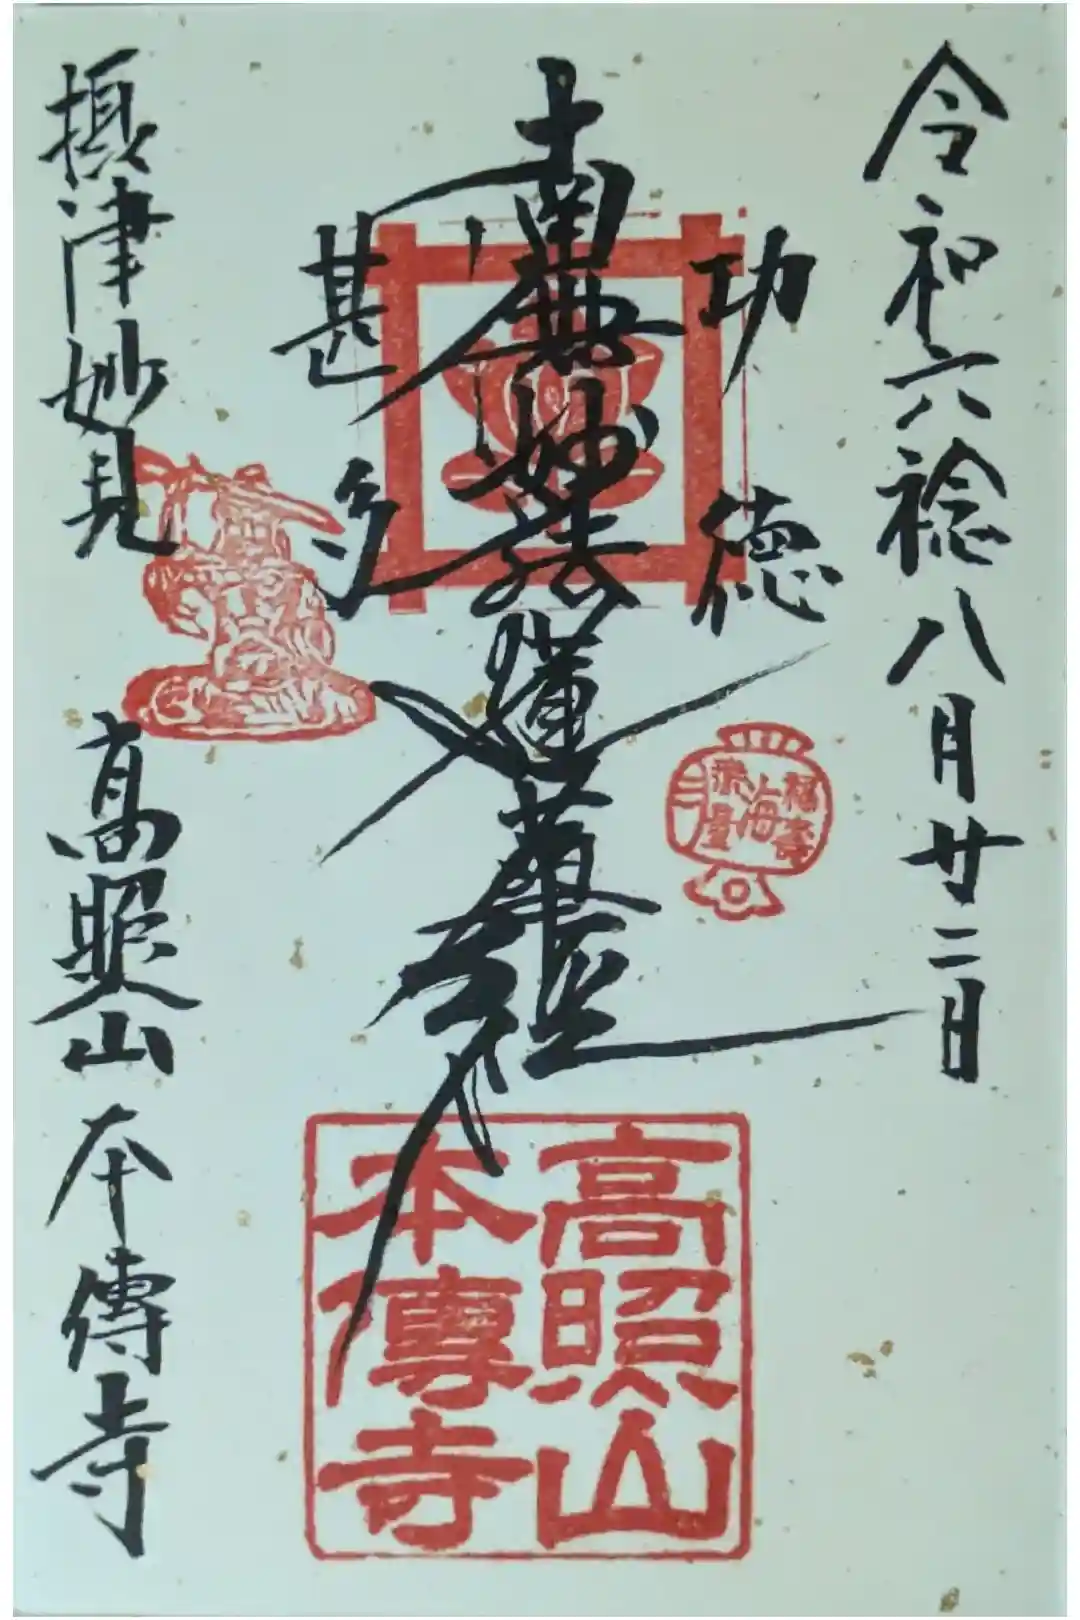 令和六稔八月廿二日
功徳
南無妙法蓮華経
甚多
摂津妙見
高照山
本傳寺
福壽
海
無量
高照山
本傳寺